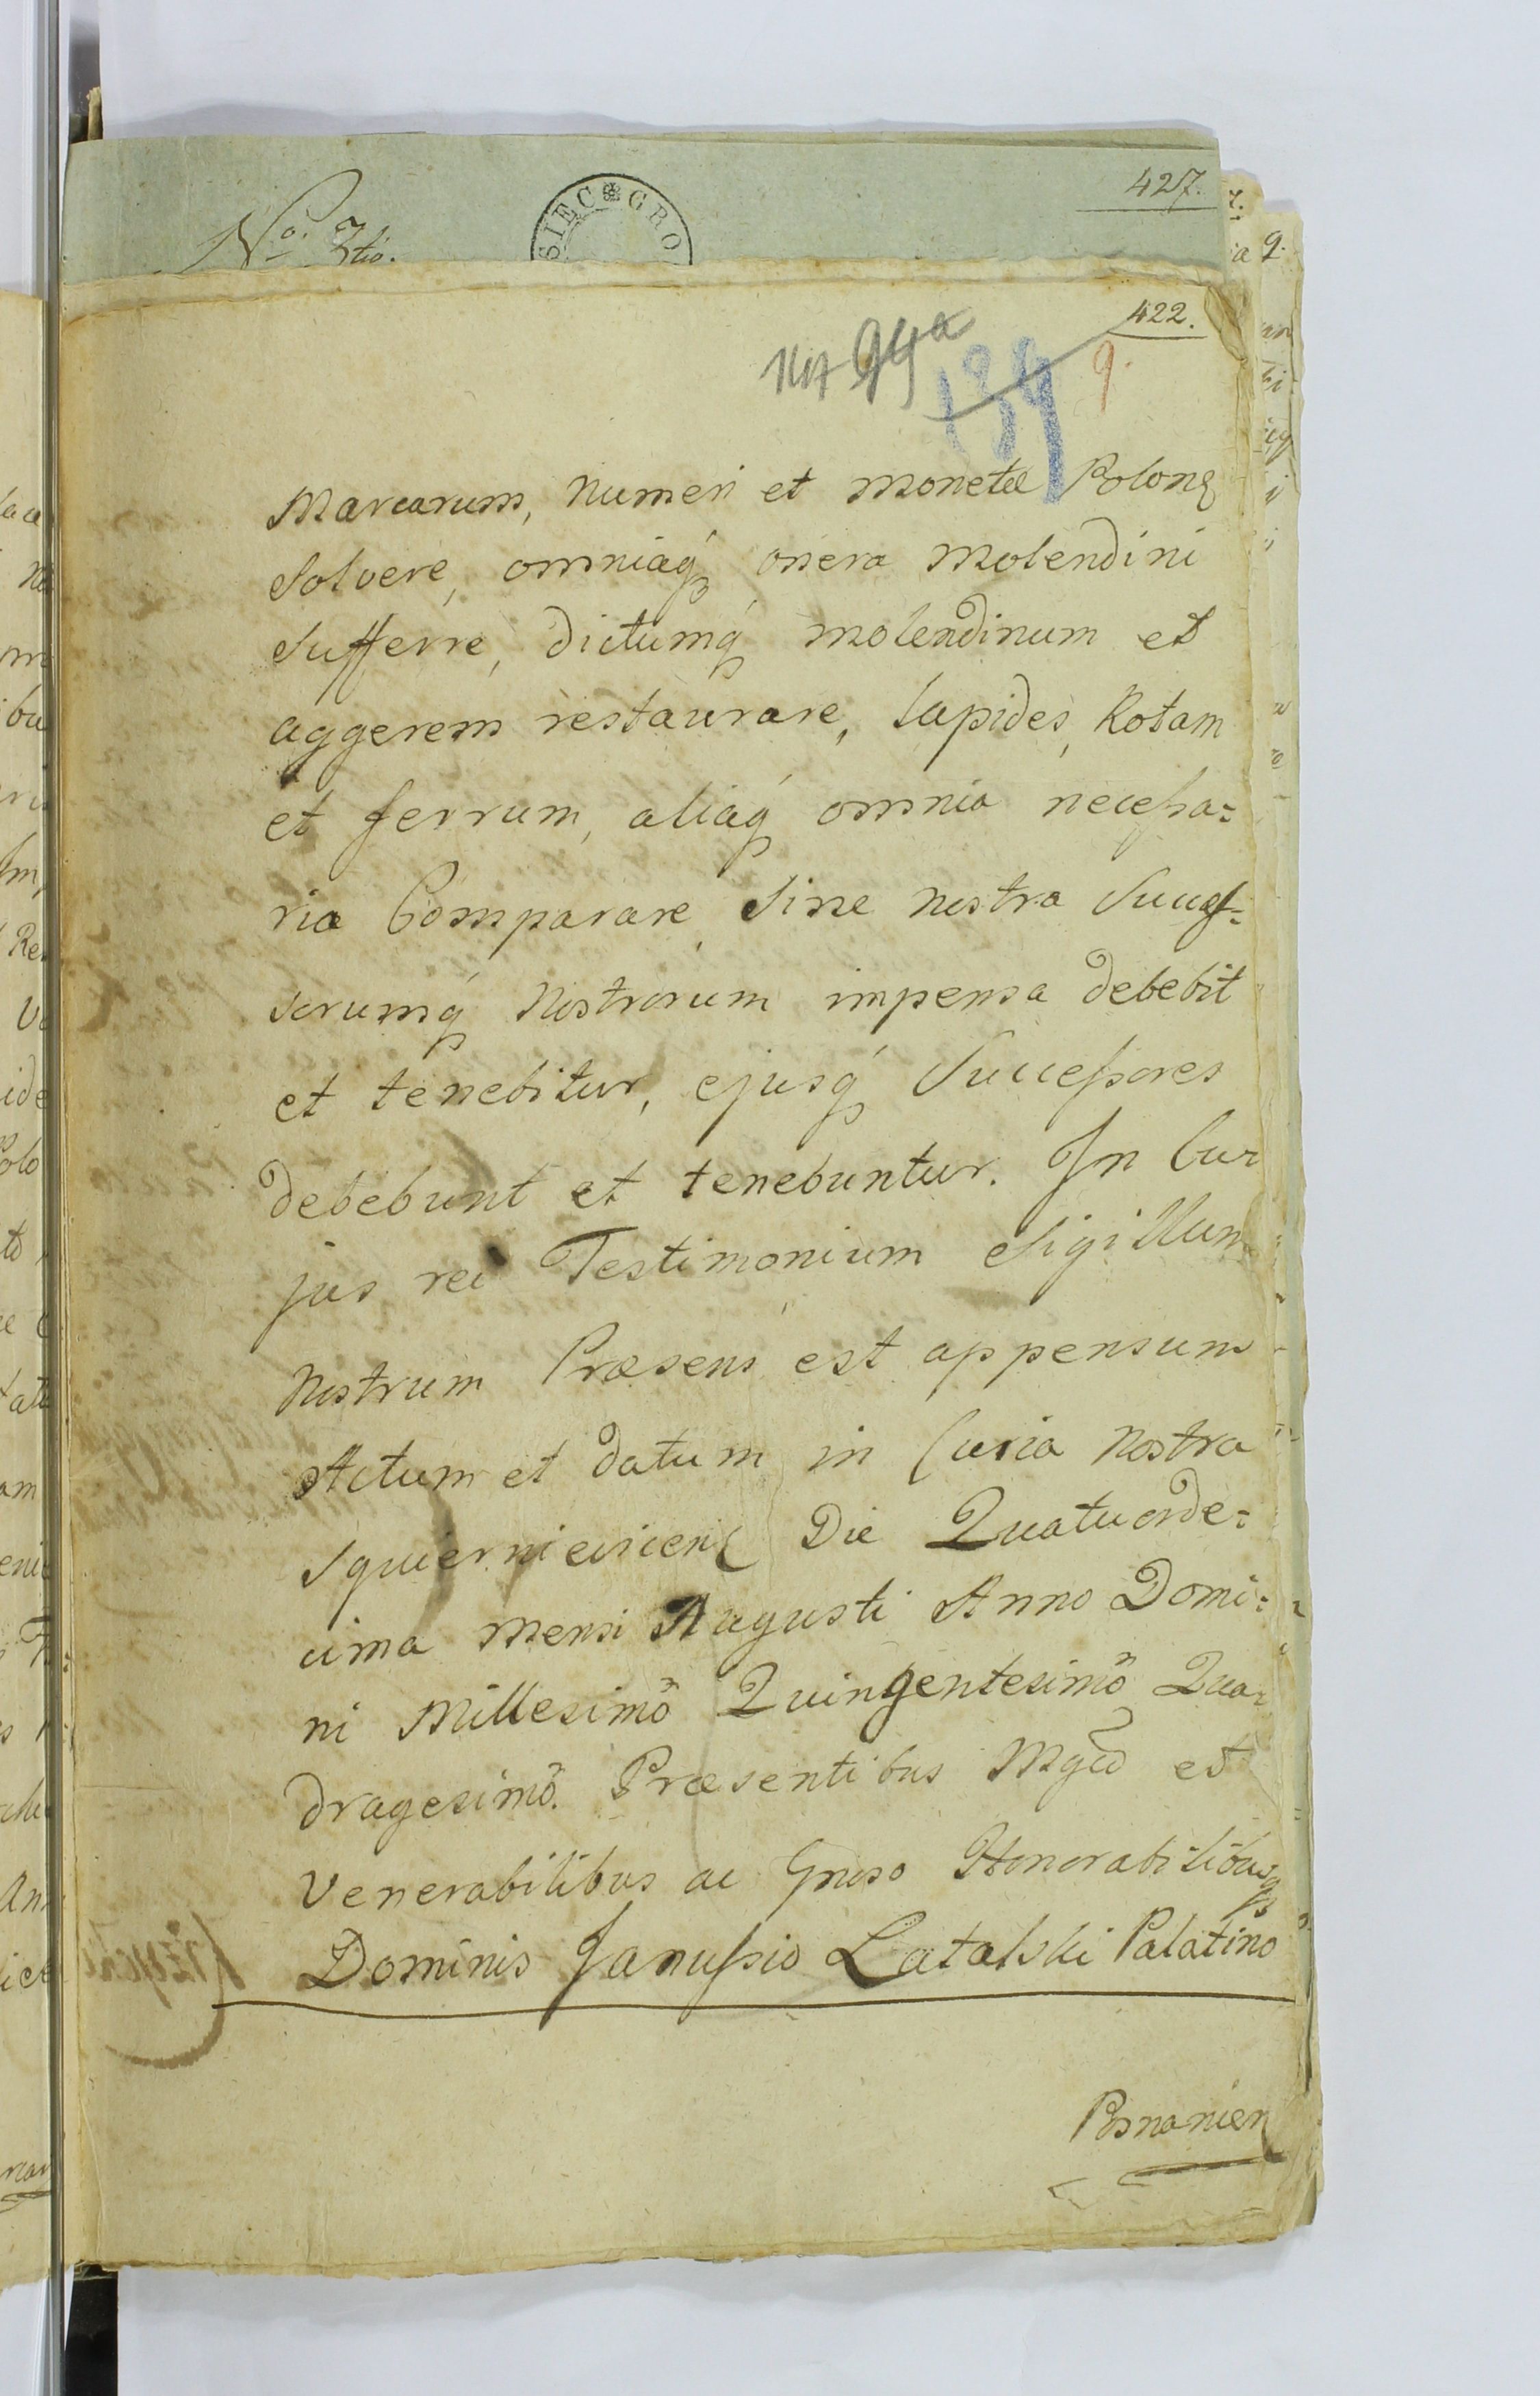 427.
No. 3tio.
SIEC GRO
422.
94a
134
9.
Marcarum, Numeri et Monetæ Polonę
Solvere, omniaq́ʒ onera Molendini
Sufferre, dictumq́ʒ molendinum et
aggerem restaurare, lapides, Rotam
et ferrum, aliaq́ʒ omnia necessa=
ria Comparare, Sine nostra Succes=
sorumq́ʒ Nostrorum impensa debebit
et tenebitur, ejusq́ʒ Successores
debebunt et tenebuntur. In Cu=
jus rei Testimonium Sigillum
Nostrum Præsens est appensum
Actum et datum in Curia Nostra
Die Quatuorde=
cima Mensi Augusti Anno Domi=
ni Millesimô Quingentesimô Qua=
dragesimô. Præsentibus Mgco et
Venerabilibus ac Gnoso Honorabilibusqʒ
Dominis Janussio Latalski Palatino
Posnanien